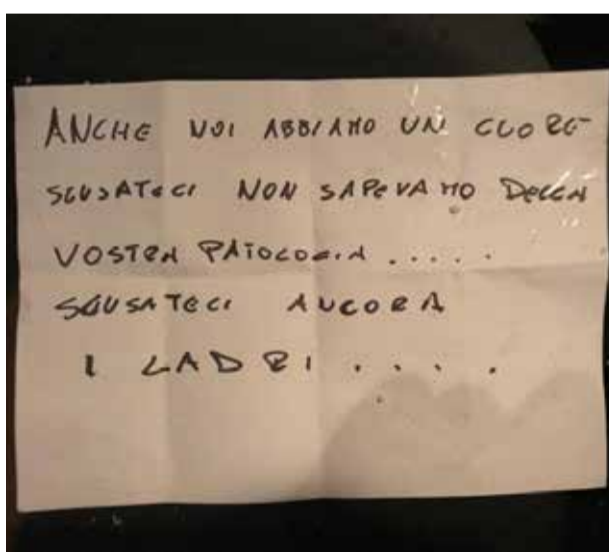 ANCHE NOI ABBIAMO UN CUORE
SCUSATECI NON SAPEVAMO DELLA
VOSTRA PATOLOGIA .....
SCUSATECI ANCORA
I LADRI ....